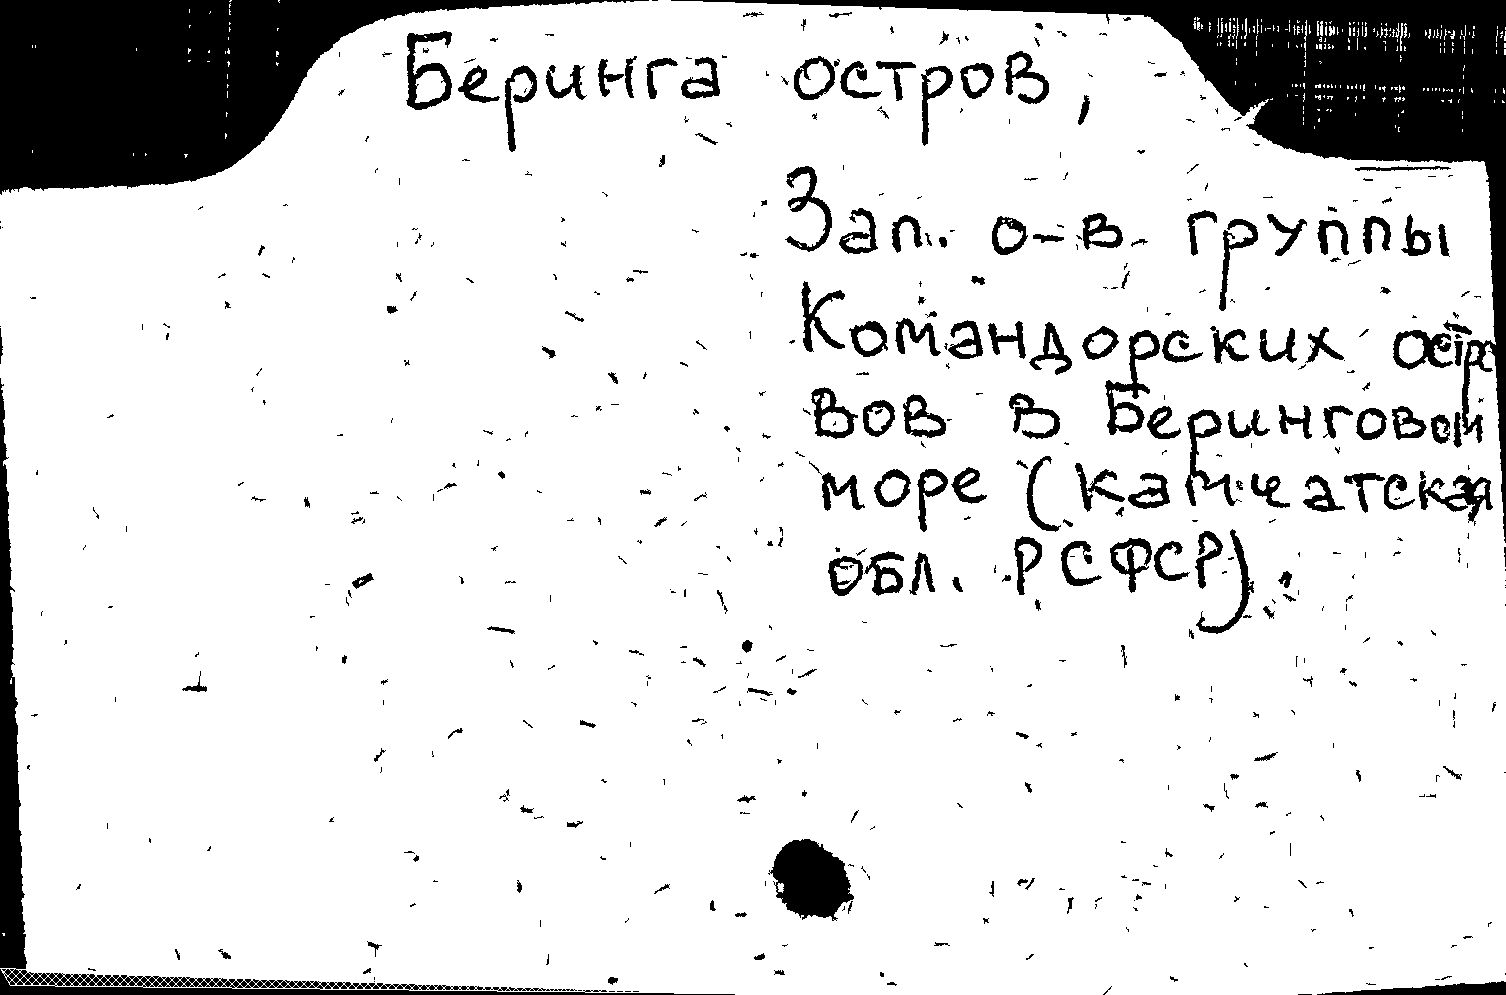 Беринга остров,
Зап. о-в группы
Командорских остро
вов в Беринговом
море (Камчатская
обл. РСФСР).